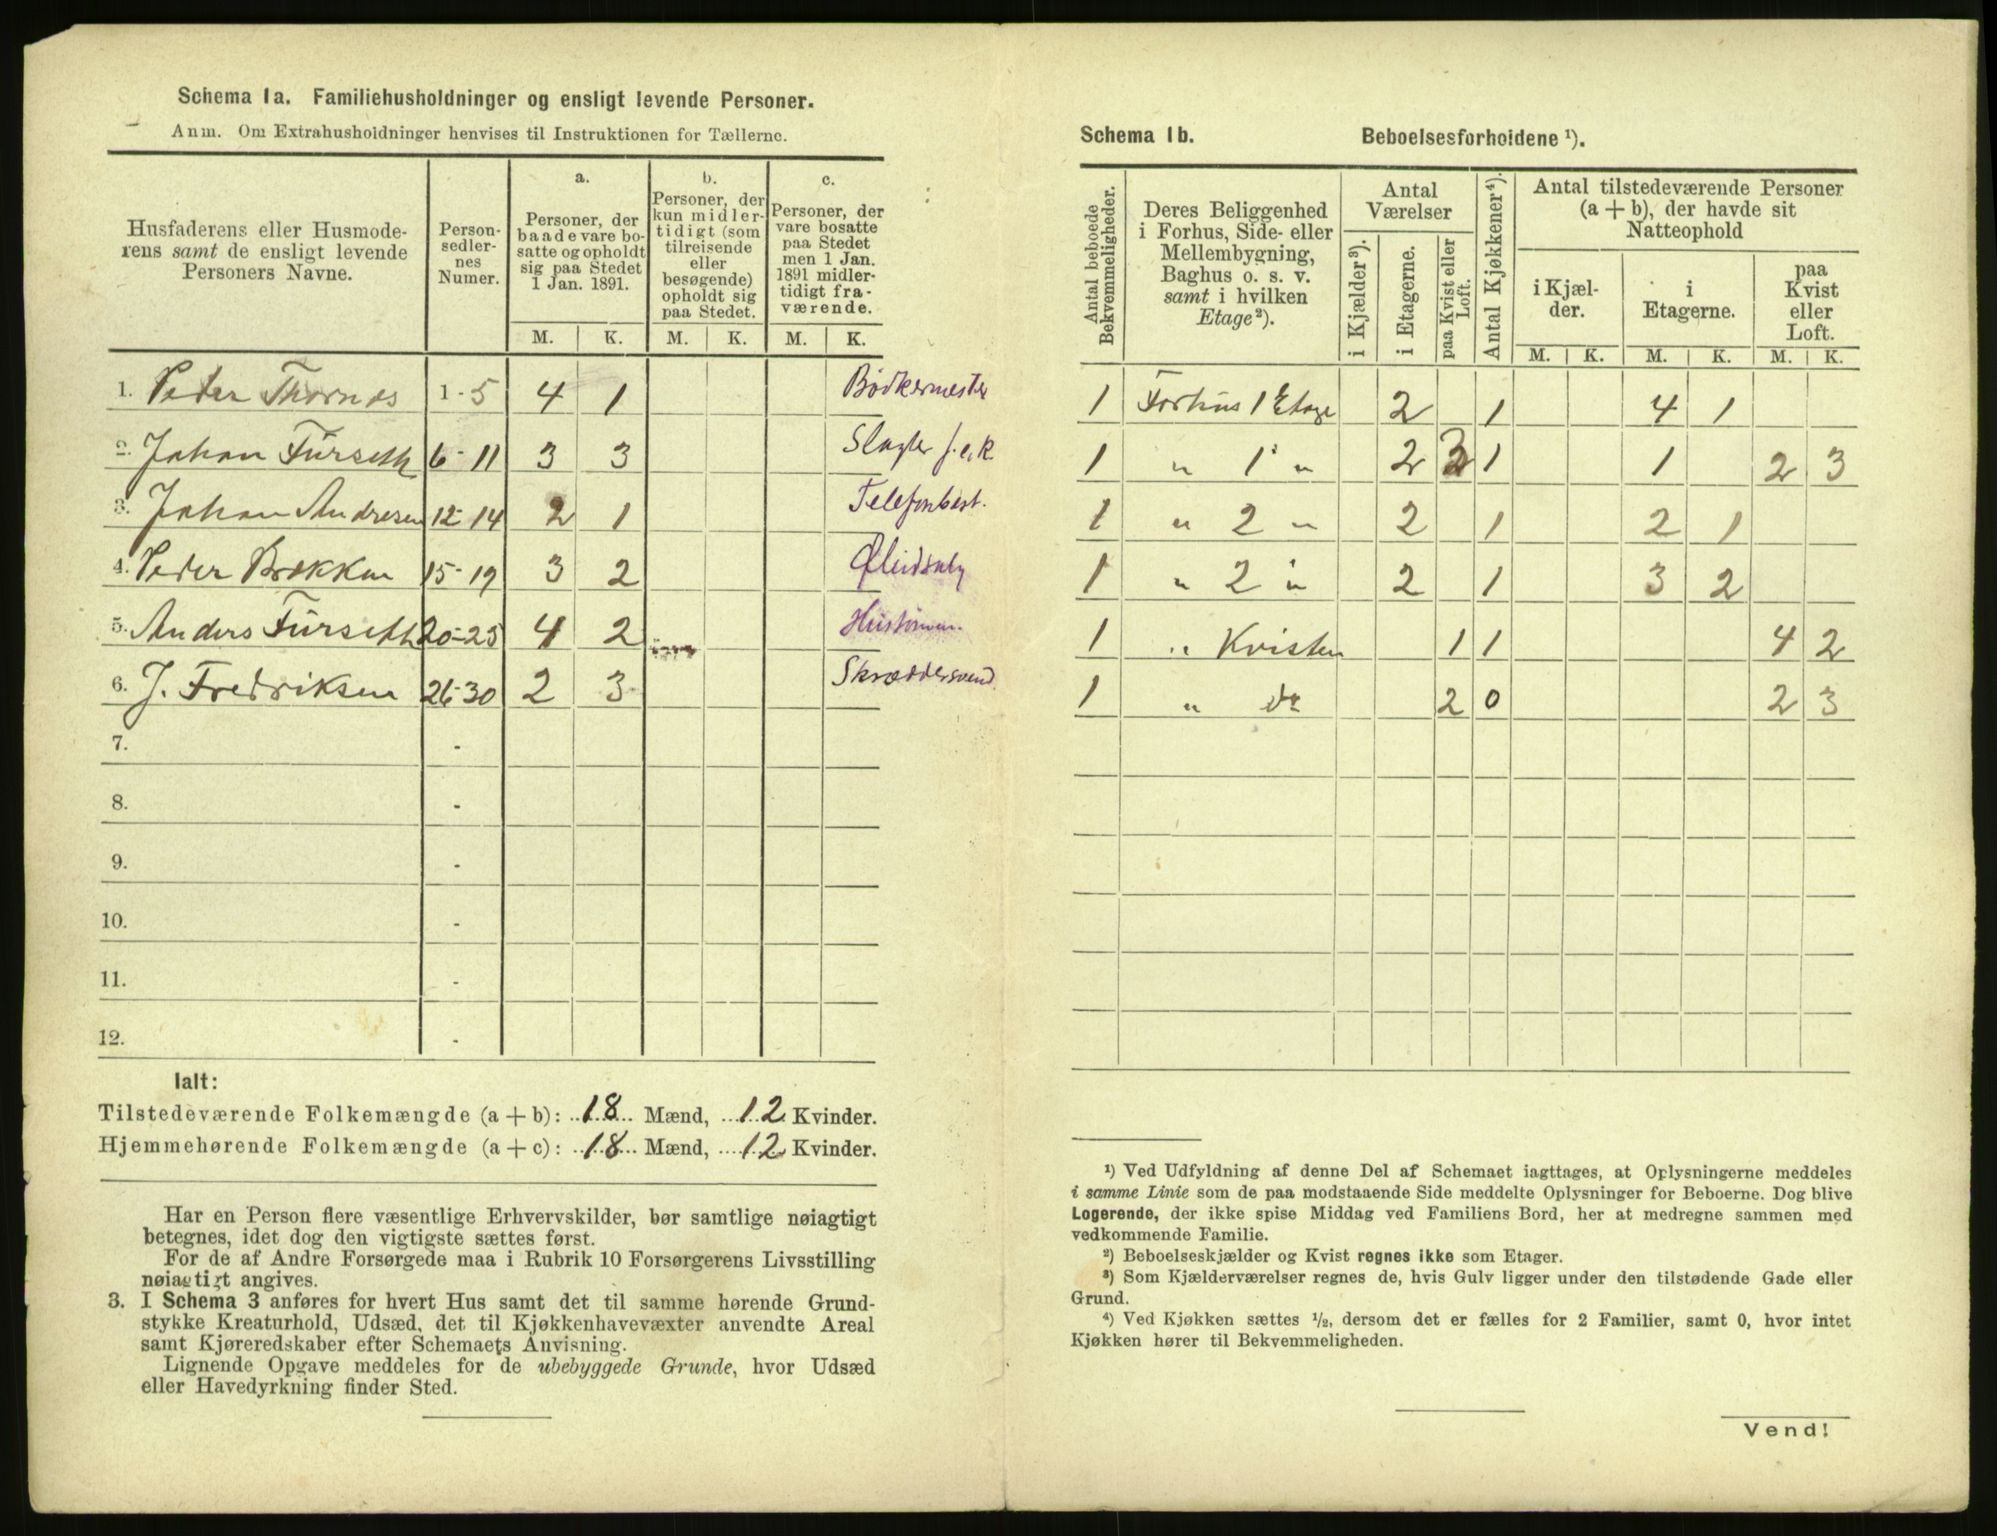 Schema Ia. Familiehusholdninger og ensligt levende Personer.
Anm. Om Extrahusholdninger henvises til Instruktionen for Tællerne.
Husfaderens eller Husmode-
rens samt de ensligt levende
Personers Navne.
Person-
sedler-
nes
Numer.
a.
Personer, der
baade vare bo-
satte og opholdt
sig paa Stedet
1 Jan. 1891.
b.
Personer, der
kun midler-
tidigt (som
tilreisende
eller
besøgende)
opholdt sig
paa Stedet.
c.
Personer, der
vare bosatte
paa Stedet
men 1 Jan.
1891 midler-
tidigt fra-
værende.
M. K. M. K. M. K.
1. Peter Thornes 1-5 4 1 Bödkermester
2. Johan Fürseth 6-11 3 3 Slagter f.e.R.
3. Johan Andresen 12-14 2 1 Telefonbest.
4. Peder Brekken 15-19 3 2
5. Anders Fürseth 20-25 4 2
6. J. Fredriksen 26-30 2 3 Skræddersvend
7. -
8. -
9. -
10. -
11. -
12. -
Ialt:
Tilstedeværende Folkemængde (a + b): 18 Mænd, 12 Kvinder.
Hjemmehørende Folkemængde (a + c): 18 Mænd, 12 Kvinder.
Har en Person flere væsentlige Erhvervskilder, bør samtlige nøiagtigt
betegnes, idet dog den vigtigste sættes først.
For de af Andre Forsørgede maa i Rubrik 10 Forsørgerens Livsstilling
nøiagtigt angives.
3. I Schema 3 anføres for hvert Hus samt det til samme hørende Grund-
stykke Kreaturhold, Udsæd, det til Kjøkkenhavevæxter anvendte Areal
samt Kjøreredskaber efter Schemaets Anvisning.
Lignende Opgave meddeles for de ubebyggede Grunde, hvor Udsæd
eller Havedyrkning finder Sted.
Schema Ib. Beboelsesforholdene ¹).
Antal beboede
Bekvemmeligheder.
Deres Beliggenhed
i Forhus, Side- eller
Mellembygning,
Baghus o. s. v.
samt i hvilken
Etage²).
Antal
Værelser
i Kjælder³).
i Etagerne.
paa Kvist eller
Loft.
Antal Kjøkkener⁴).
Antal tilstedeværende Personer
(a + b), der havde sit
Natteophold
i Kjæl-
der.
i
Etagerne.
paa
Kvist
eller
Loft.
M. K. M. K. M. K.
1 Forhus 1 Etage 2 1 4 1
1 " 1 " 2 3 1 1 2 3
1 " 2 " 2 1 2 1
1 " 2 " 2 1 3 2
1 " Kvisten 1 1 4 2
1 " do 2 0 2 3
¹) Ved Udfyldning af denne Del af Schemaet iagttages, at Oplysningerne meddeles
i samme Linie som de paa modstaaende Side meddelte Oplysninger for Beboerne. Dog blive
Logerende, der ikke spise Middag ved Familiens Bord, her at medregne sammen med
vedkommende Familie.
²) Beboelseskjælder og Kvist regnes ikke som Etager.
³) Som Kjælderværelser regnes de, hvis Gulv ligger under den tilstødende Gade eller
Grund.
⁴) Ved Kjøkken sættes ½, dersom det er fælles for 2 Familier, samt 0, hvor intet
Kjøkken hører til Bekvemmeligheden.
Vend!